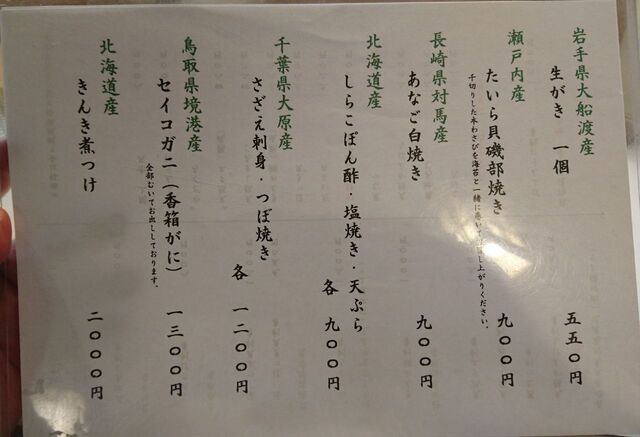 岩手県大船渡産
生がき 一個 五五〇円
瀬戸内産
たいら貝磯部焼き 九〇〇円
千切りした本わさびを海苔と一緒に巻いてお召し上がりください。
長崎県対馬産
あなご白焼き 九〇〇円
北海道産
しらこぽん酢・塩焼き・天ぷら 各 九〇〇円
千葉県大原産
さざえ刺身・つぼ焼き 各 一二〇〇円
鳥取県境港産
セイコガニ(香箱がに) 一三〇〇円
全部むいてお出ししております。
北海道産
きんき煮つけ 二〇〇〇円